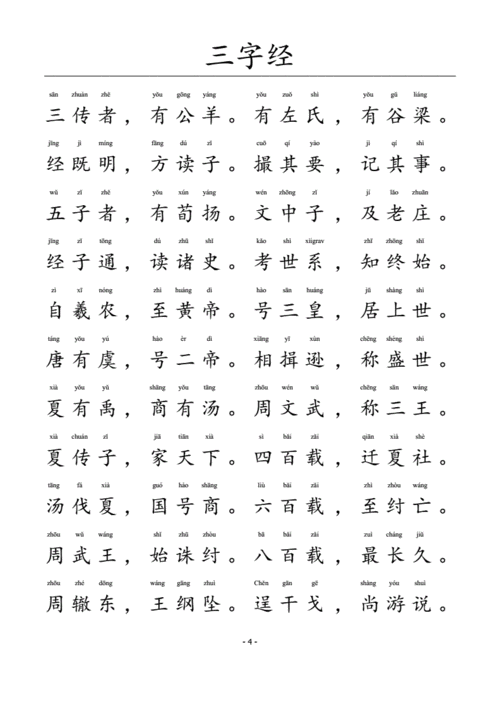 三字经
sān zhuàn zhě yǒu gōng yáng yǒu zuǒ shì yǒu gǔ liáng
三传者，有公羊。有左氏，有谷梁。
jīng jì míng fāng dú zǐ cuō qí yào jì qí shì
经既明，方读子。撮其要，记其事。
wǔ zǐ zhě yǒu xún yáng wén zhōng zǐ jí lǎo zhuāng
五子者，有荀扬。文中子，及老庄。
jīng zǐ tōng dú zhū shǐ kǎo shì xìigrav zhī zhōng shǐ
经子通，读诸史。考世系，知终始。
zì xī nóng zhì huáng dì hào sān huáng jū shàng shì
自羲农，至黄帝。号三皇，居上世。
táng yǒu yú hào èr dì xiāng yī xùn chēng shèng shì
唐有虞，号二帝。相揖逊，称盛世。
xià yǒu yǔ shāng yǒu tāng zhōu wén wǔ chēng sān wáng
夏有禹，商有汤。周文武，称三王。
xià chuán zǐ jiā tiān xià sì bǎi zǎi qiān xià shè
夏传子，家天下。四百载，迁夏社。
tāng fá xià guó hào shāng liù bǎi zǎi zhì zhòu wáng
汤伐夏，国号商。六百载，至纣亡。
zhōu wǔ wáng shǐ zhū zhòu bā bǎi zǎi zuì cháng jiǔ
周武王，始诛纣。八百载，最长久。
zhōu zhé dōng wáng gāng zhuì Chěn gān gē shàng yóu shuì
周辙东，王纲坠。逞干戈，尚游说。
- 4 -